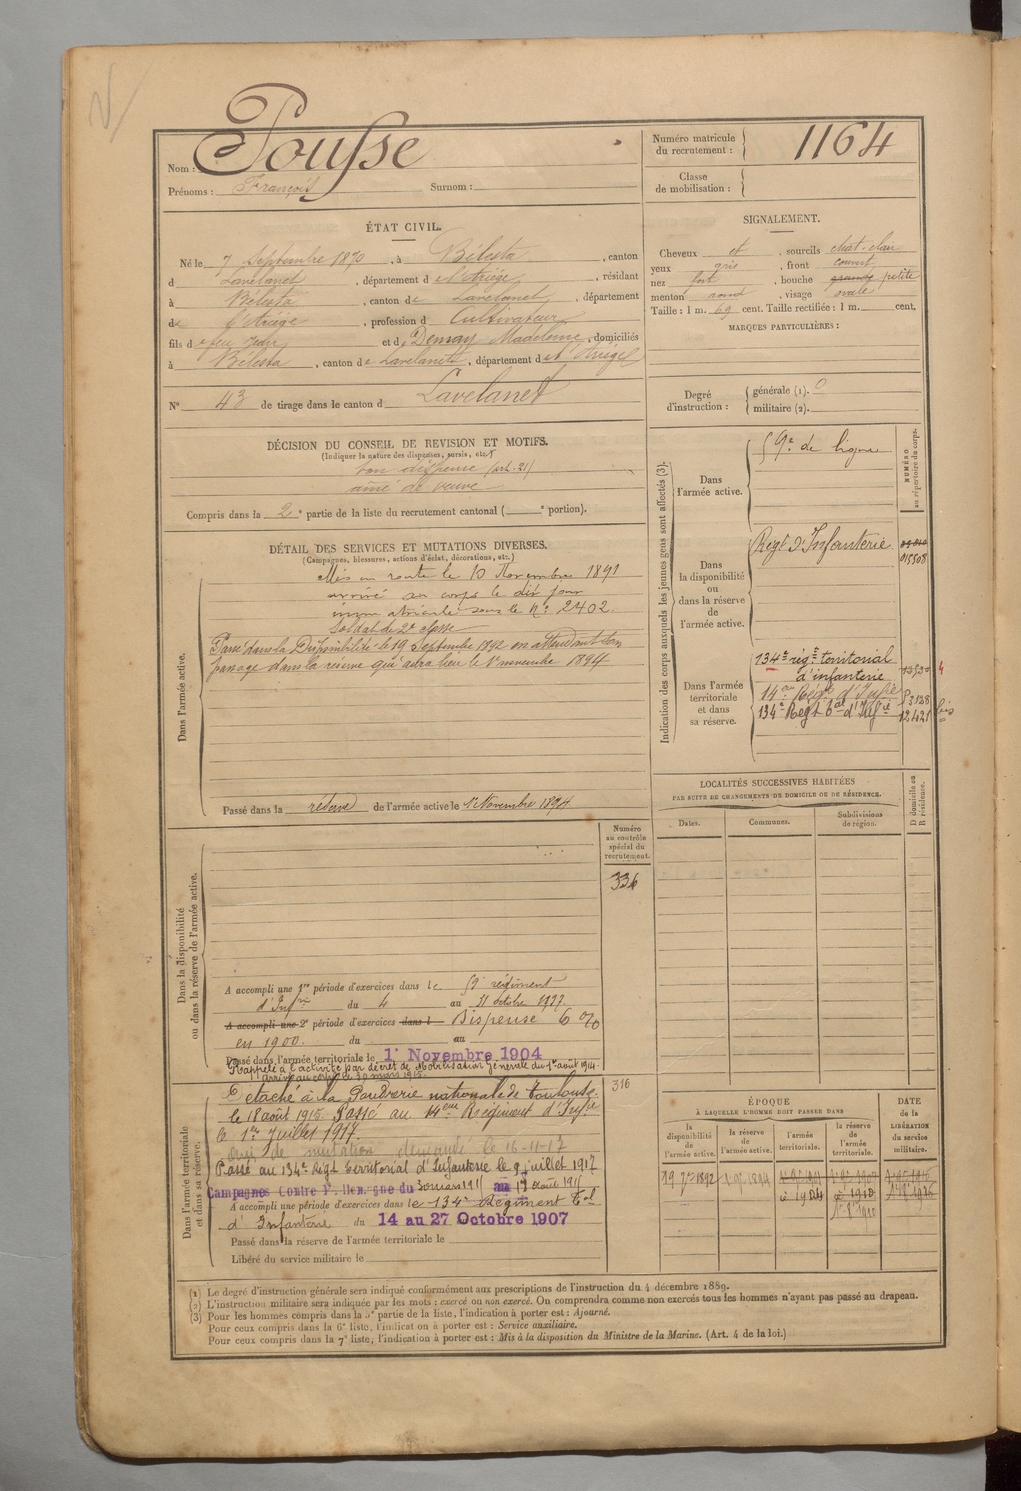 Nom : Pousse
Prénoms : François Surnom :
Numéro matricule du recrutement : 1164
Classe de mobilisation :
ÉTAT CIVIL.
Né le 7 Septembre 1870, à Bélesta, canton
d Lavelanet, département de l'Ariège, résidant
à Bélesta, canton de Lavelanet, département
de l'Ariège, profession d Cultivateur
fils de feu Jean et d Demay Madeleine, domiciliés
à Bélesta, canton de Lavelanet, département de l'Ariège
N° 43 de tirage dans le canton d Lavelanet
SIGNALEMENT.
Cheveux et, sourcils chât-clair
yeux gris, front couvert
nez fort, bouche grande petite
menton rond, visage ovale
Taille : 1 m. 69 cent. Taille rectifiée : 1 m. cent.
MARQUES PARTICULIÈRES :
Degré d'instruction : générale (1). 0
militaire (2).
DÉCISION DU CONSEIL DE REVISION ET MOTIFS.
(Indiquer la nature des dispenses, sursis, etc.)
bon dispensé (art. 21)
aîné de veuve
Compris dans la 2e partie de la liste du recrutement cantonal ( e portion).
DÉTAIL DES SERVICES ET MUTATIONS DIVERSES.
(Campagnes, blessures, actions d'éclat, décorations, etc.)
Dans l'armée active.
Mis en route le 10 Novembre 1891
arrivé au corps le dit jour
immatriculé sous le N° 2402.
Soldat de 2e classe
Passé dans la Disponibilité le 19 Septembre 1892 en attendant son
passage dans la réserve qui aura lieu le 1er novembre 1894
Passé dans la réserve de l'armée active le 1er Novembre 1894
Indication des corps auxquels les jeunes gens sont affectés (3).
NUMÉRO au répertoire du corps.
Dans l'armée active.
59e de ligne
Dans la disponibilité ou dans la réserve de l'armée active.
Regt d'Infanterie
015508
Dans l'armée territoriale et dans sa réserve.
134e régt territorial
d'infanterie
14e Régt d'Infie
134e Régt tal d'Infie 12421 bis
LOCALITÉS SUCCESSIVES HABITÉES
PAR SUITE DE CHANGEMENTS DE DOMICILE OU DE RÉSIDENCE.
Dates. Communes. Subdivisions de région. D domicile ou R résidence.
Numéro au contrôle spécial du recrutement.
336
Dans la disponibilité ou dans la réserve de l'armée active.
A accompli une 1re période d'exercices dans le 59e régiment
d'Infrie du 4 au 31 octobre
A accompli une 2e période d'exercices dans l Dispensé 6 %
en 1900. du au
Passé dans l'armée territoriale le 1er Novembre 1904
Rappelé à l'activité par décret de Mobilisation Générale du 1er août 1914.
Arrivé au corps le 30 mars 1915.
Dans l'armée territoriale et dans sa réserve.
316
Détaché à la Poudrerie nationale de Toulouse
le 18 août 1915. Passé au 14eme Régiment d'Infie
le 1er Juillet 1917.
avis de mutation demandé le 16-11-17
Passé au 134e Régt territorial d'Infanterie le 9 juillet 1917
Campagnes Contre l'Allemagne du 30 mars 1915 au 17 août 1915
A accompli une période d'exercices dans le 134e Régiment tal
d'Infanterie du 14 au 27 Octobre 1907
Passé dans la réserve de l'armée territoriale le
Libéré du service militaire le
ÉPOQUE
À LAQUELLE L'HOMME DOIT PASSER DANS
la disponibilité de l'armée active. la réserve de l'armée active. l'armée territoriale. la réserve de l'armée territoriale. DATE de la LIBÉRATION du service militaire.
19 7bre 1892 1er 9bre 1894
(1) Le degré d'instruction générale sera indiqué conformément aux prescriptions de l'instruction du 4 décembre 1889.
(2) L'instruction militaire sera indiquée par les mots : exercé ou non exercé. On comprendra comme non exercés tous les hommes n'ayant pas passé au drapeau.
(3) Pour les hommes compris dans la 5e partie de la liste, l'indication à porter est : Ajourné.
Pour ceux compris dans la 6e liste, l'indication à porter est : Service auxiliaire.
Pour ceux compris dans la 7e liste, l'indication à porter est : Mis à la disposition du Ministre de la Marine. (Art. 4 de la loi.)